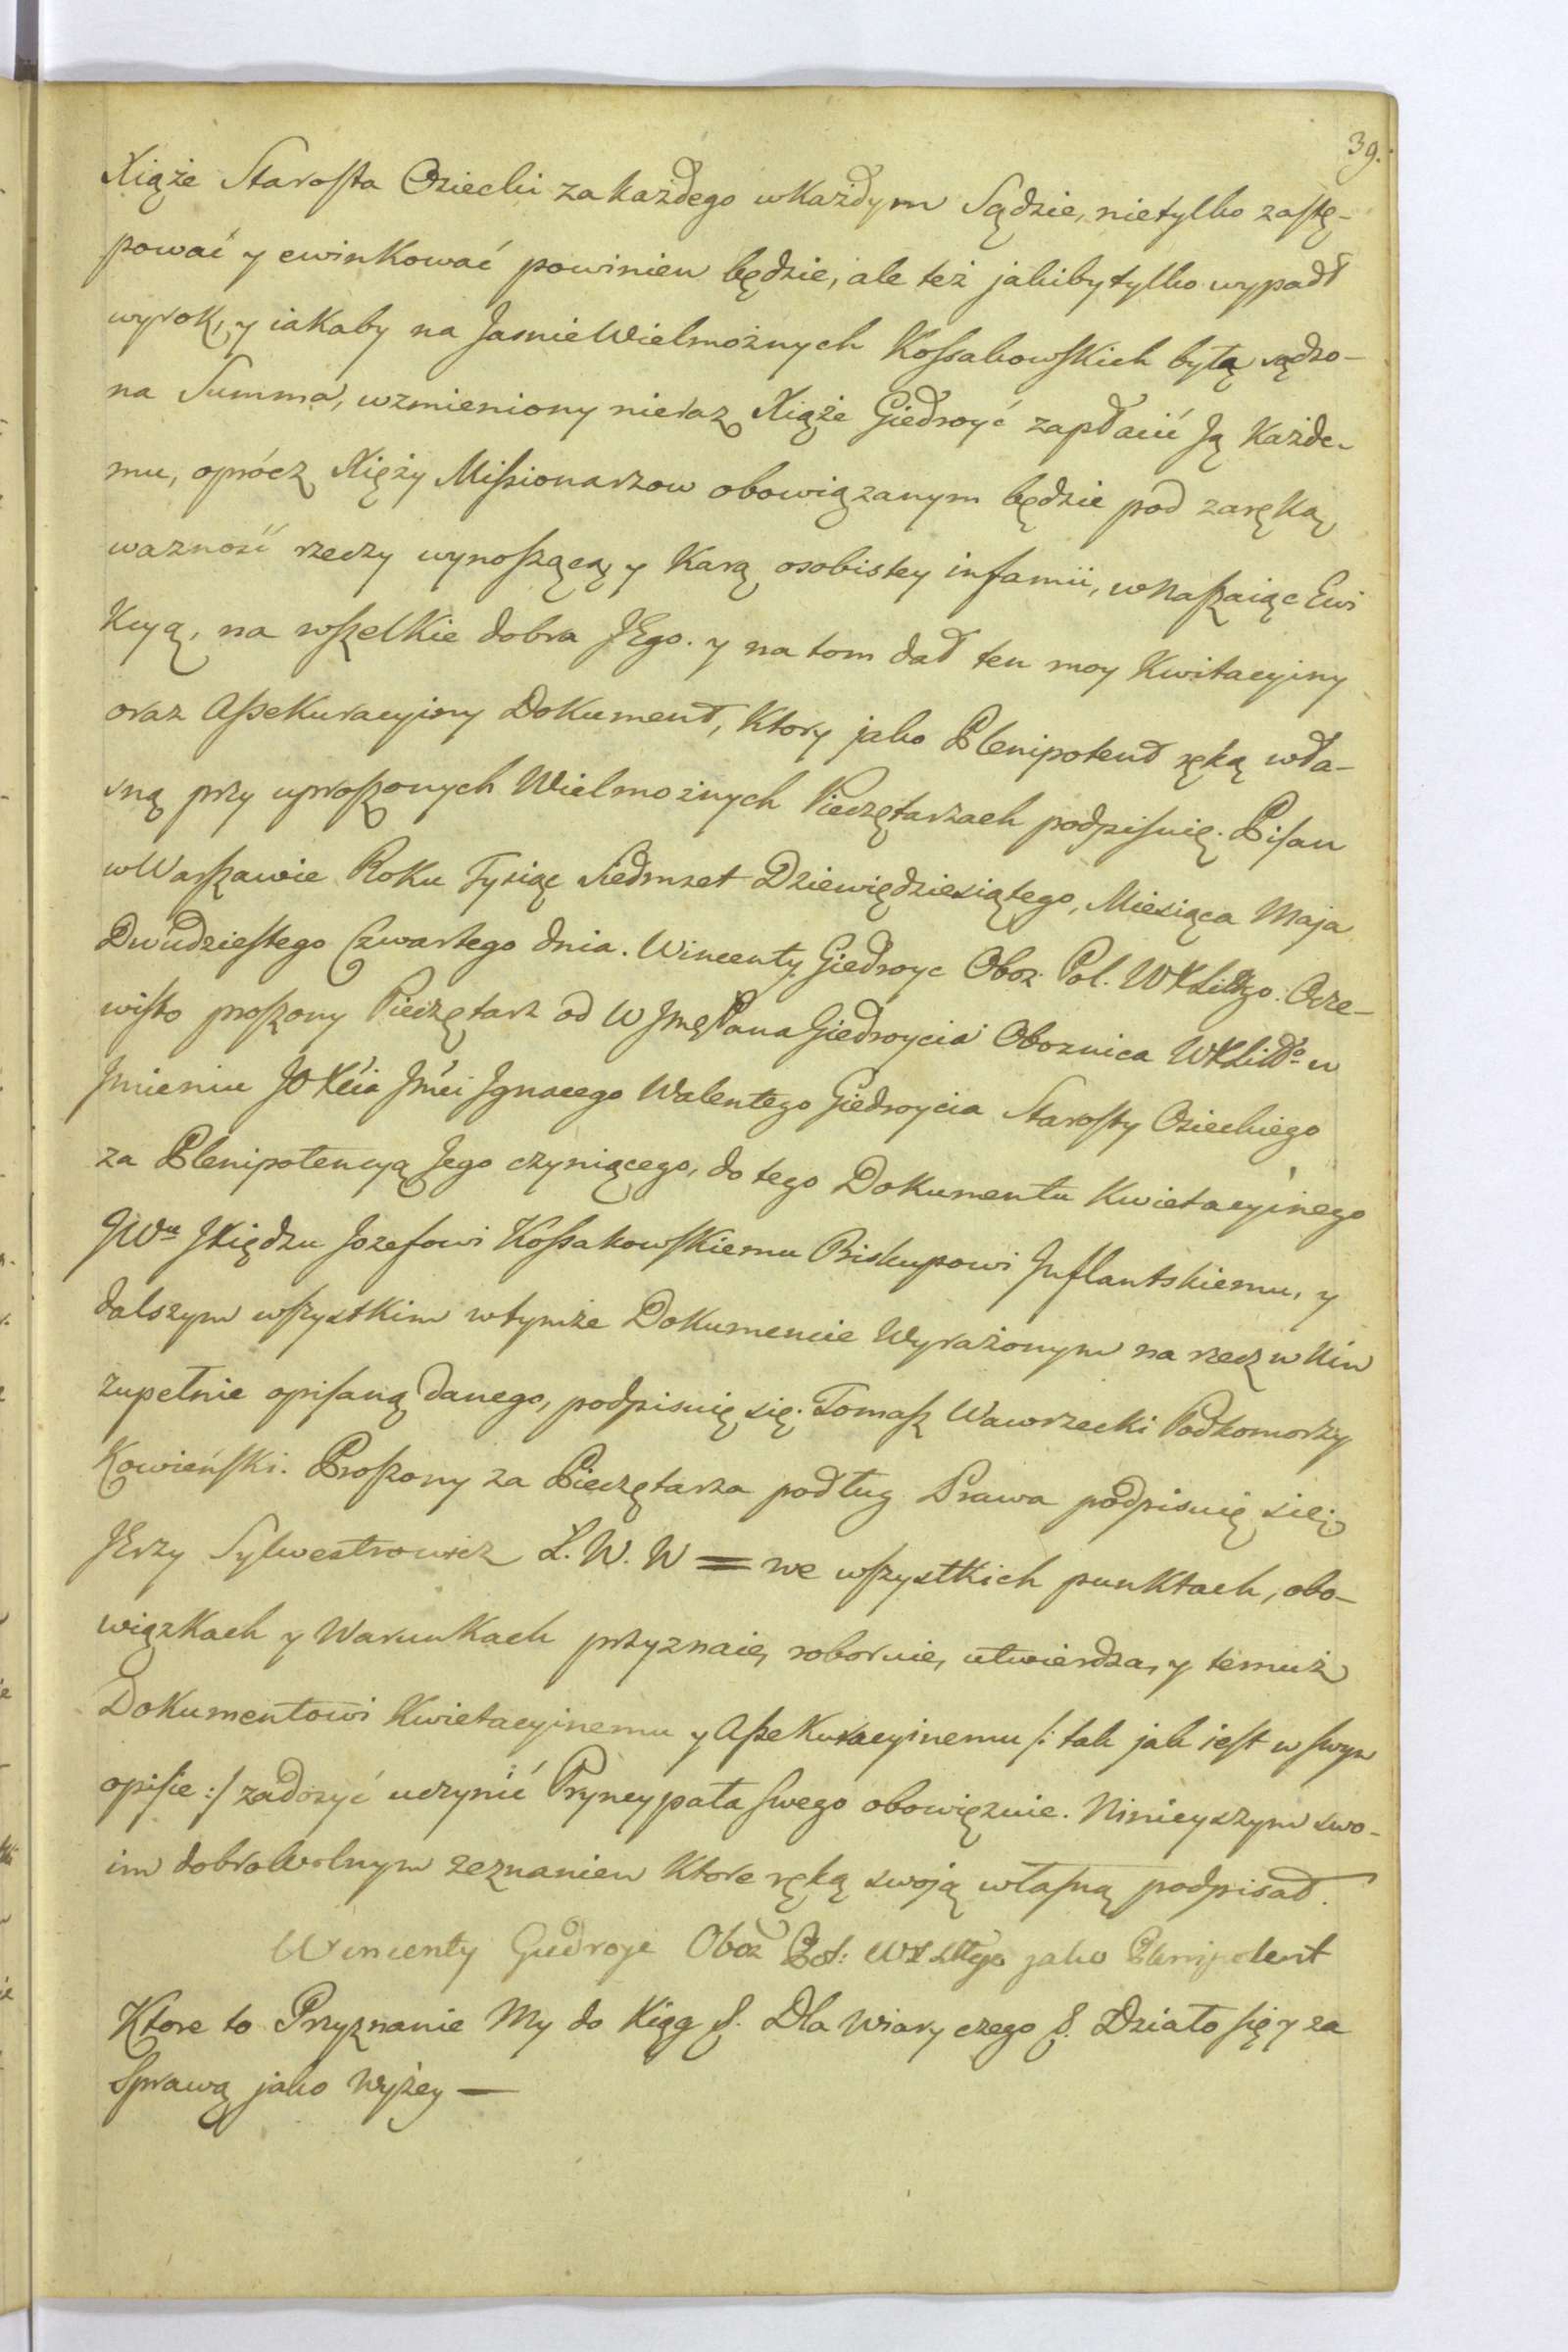 39.
Xiąże Starosta Osiecki za każdego w każdym Sądzie, nie tylko zastę-
pować y ewinkować powinien będzie, ale też jakiby tylko wypadł
wyrok, y iakaby na JasnieWielmożnych Kossakowskich byłą sądzo-
na Summa, wzmieniony nieraz Xiąże Giedroyć zapłacić Ją każde-
mu, oprócz Xięży Missionarzow obowiązanym będzie pod zaręką
wazność rzeczy wynoszącą y Karą osobistey infamii, wnaszaiąc Ewi
kcyą, na wszelkie dobra JEgo. y na tom dał ten moy Kwitacyiny
oraz Assekuracyiny Dokument, Ktory jako Plenipotent ręką wła-
sną przy uproszonych Wielmożnych Pieczętarzach podpisuię. Pisan
w Warszawie Roku Tysiąc Siedmset Dziewiędziesiątego, Miesiąca Maja
Dwudziestego Czwartego dnia. Wincenty Giedroyc Oboz: Pol. WXLittgo. Ocze-
wisto proszony Pieczętarz od W Jmę Pana Giedroycia Oboznica WXLittº w
Jmieniu JO Xcia Jmći Jgnacego Walentego Giedroycia Starosty Osieckiego
za Plenipotencyą Jego czyniącego, do tego Dokumentu Kwietacyinego
JWu JXiędzu Jozefowi Kossakowskiemu Biskupowi Jnflantskiemu, y
dalszym wszystkim w tymże Dokumencie Wyrażonym na rzecz w Nim
zupełnie opisaną danego, podpisuię się. Tomasz Wawrzecki Podkomorzy
Kowieński. Proszony za Pieczętarza podług Prawa podpisuię się:
JErzy Sylwestrowicz L. W. W = we wszystkich punktach, obo-
wiązkach y Warunkach przyznaie, roboruie, utwierdza, y temuż
Dokumentowi Kwietacyinemu y Assekuracyinemu /: tak jak iest w swym
opisie :/ zadosyć uczynić Pryncypała swego obowięzuie. Ninieyszym swo-
im dobrowolnym zeznaniem Ktore ręką swoją własną podpisał.
Wincenty Giedroyc Oboz Pol: WX Littgo jako Plenipotent
Ktore to Przyznanie My do Xiąg &. Dla Wiary czego &. Działo się y za
Sprawą jako Wyżey —